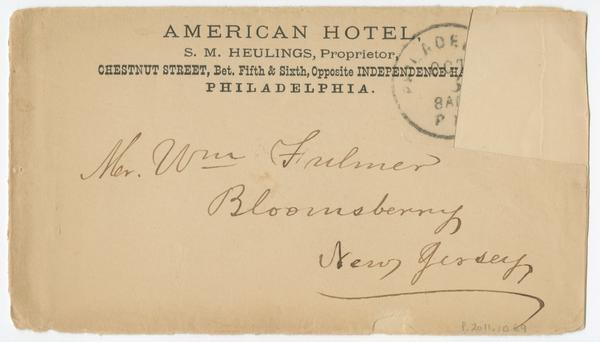 AMERICAN HOTEL,
S. M. HEULINGS, Proprietor,
CHESTNUT STREET, Bet. Fifth & Sixth, Opposite INDEPENDENCE HA
PHILADELPHIA.
PHILADE
OCT
8AM
P
Mr. Wm Fulmer
Bloomsberry
New Jersey
P.2011.10.89